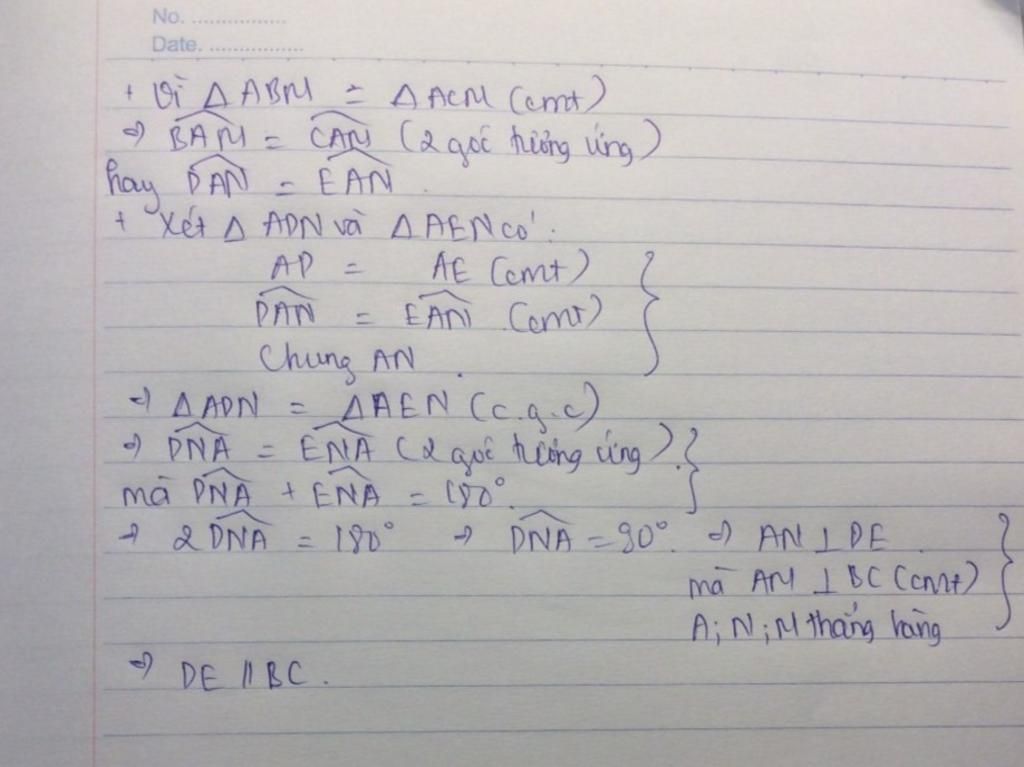 No. ................
Date. ................
+ Vì △ ABM = △ ACM (cmt)
⇒ \widehat{BAM} = \widehat{CAM} (2 góc tương ứng)
hay \widehat{DAN} = \widehat{EAN}.
+ Xét △ ADN và △ AEN có:
AD = AE (cmt)
\widehat{DAN} = \widehat{EAN} (cmt)
Chung AN.
⇒ △ADN = △AEN (c.g.c)
⇒ \widehat{DNA} = \widehat{ENA} (2 góc tương ứng).
mà \widehat{DNA} + \widehat{ENA} = 180°.
⇒ 2\widehat{DNA} = 180° ⇒ \widehat{DNA} = 90°. ⇒ AN ⊥ DE.
mà AM ⊥ BC (cmt)
A; N; M thẳng hàng
⇒ DE // BC.